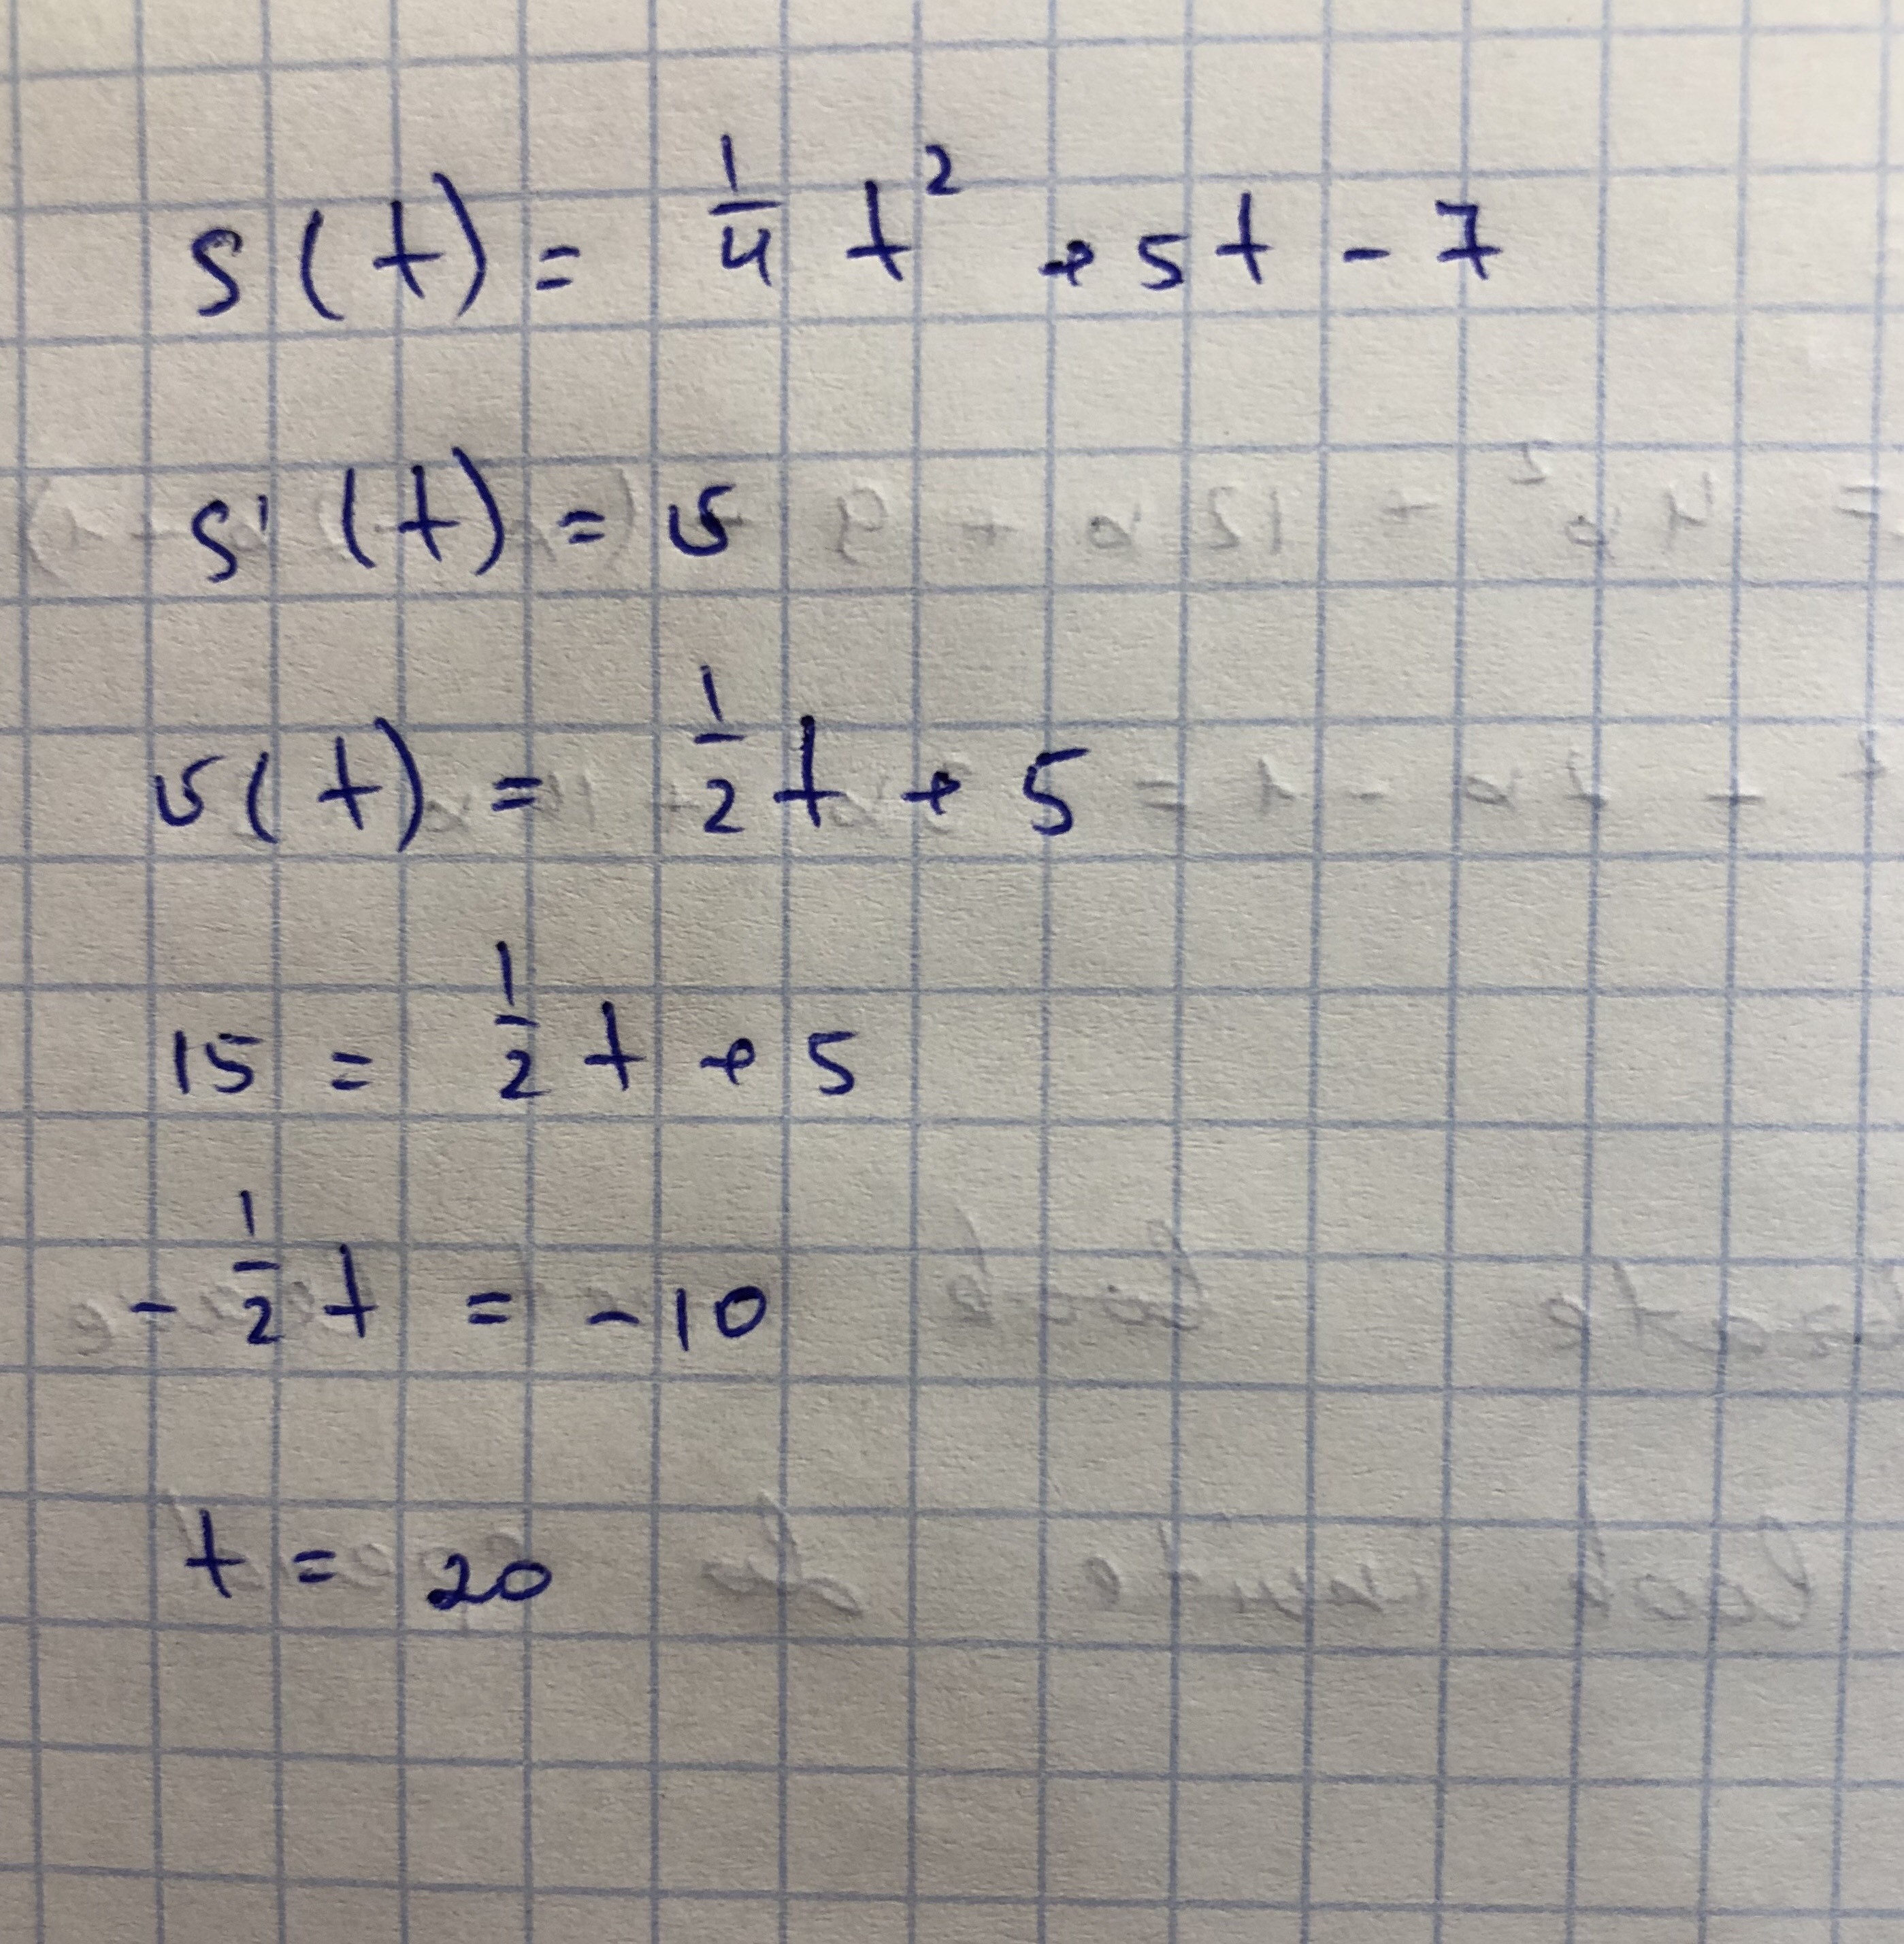 s(t) = 1/4 t² + 5t - 7
s'(t) = v
v(t) = 1/2 t + 5
15 = 1/2 t + 5
- 1/2 t = -10
t = 20